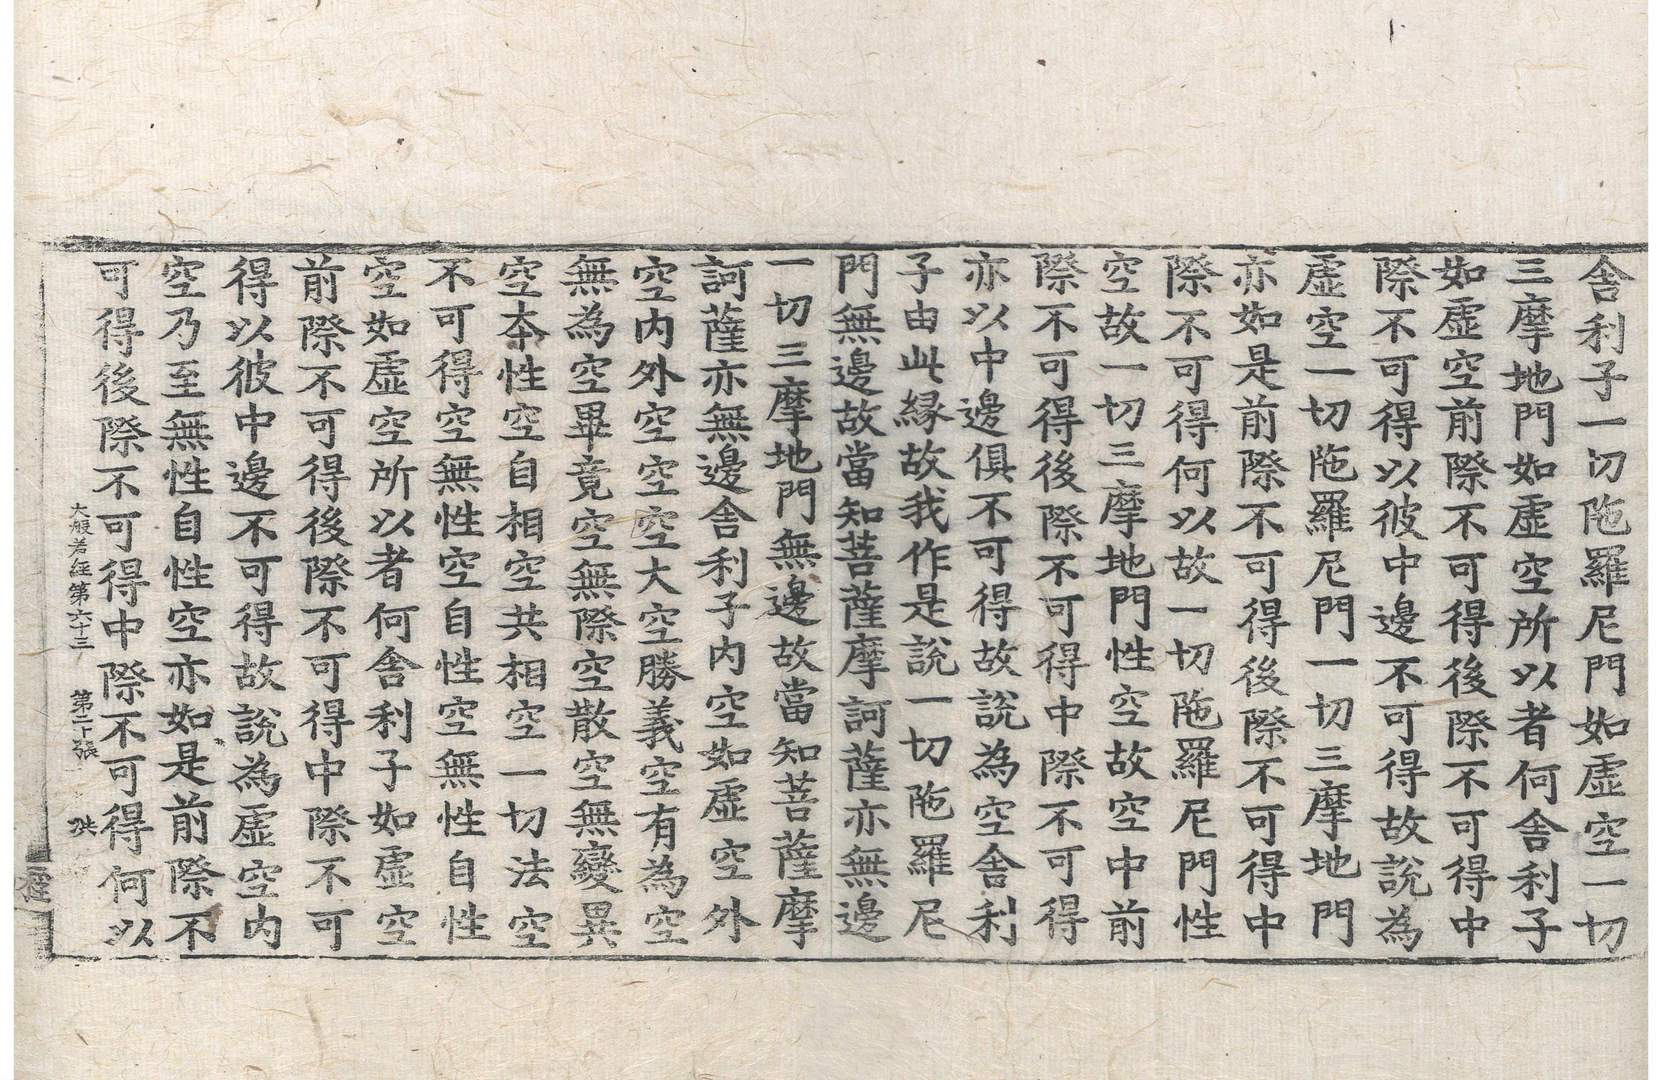 舍利子一切陁羅尼門如虛空一切
三摩地門如虛空所以者何舍利子
如虛空前際不可得後際不可得中
際不可得以彼中邊不可得故說為
虛空一切陁羅尼門一切三摩地門
亦如是前際不可得後際不可得中
際不可得何以故一切陁羅尼門性
空故一切三摩地門性空故空中前
際不可得後際不可得中際不可得
亦以中邊俱不可得故說為空舍利
子由此緣故我作是說一切陁羅尼
門無邊故當知菩薩摩訶薩亦無邊
一切三摩地門無邊故當知菩薩摩
訶薩亦無邊舍利子內空如虛空外
空內外空空空大空勝義空有為空
無為空畢竟空無際空散空無變異
空本性空自相空共相空一切法空
不可得空無性空自性空無性自性
空如虛空所以者何舍利子如虛空
前際不可得後際不可得中際不可
得以彼中邊不可得故說為虛空內
空乃至無性自性空亦如是前際不
可得後際不可得中際不可得何以
大般若經第六十三 第二十張 洪